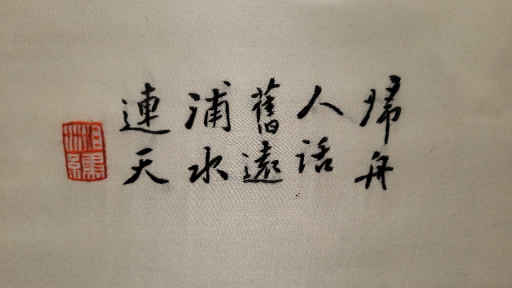 歸舟
人話
舊遠
浦水
連天